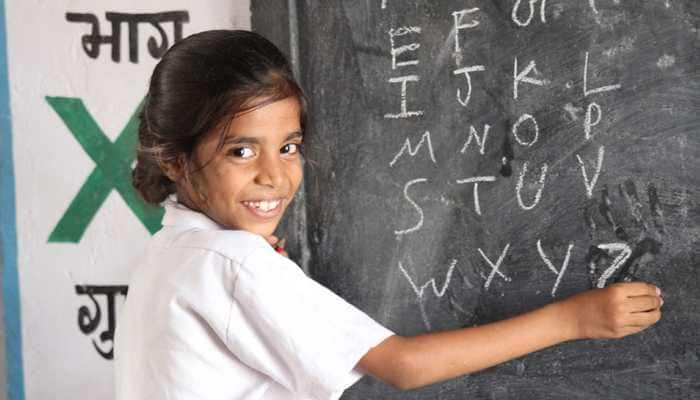 भाग
गु
E F
I J K L
M N O P
S T U V
W X Y Z